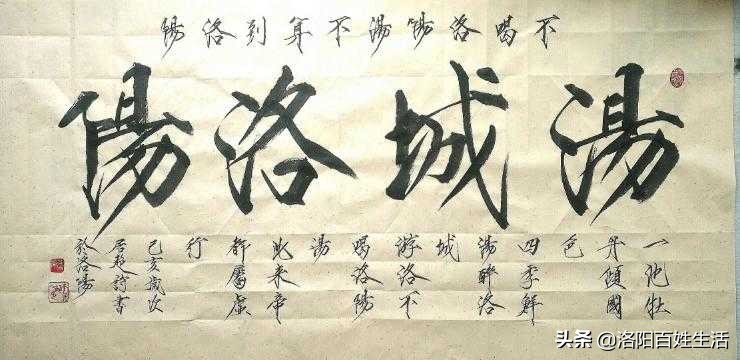 不喝洛陽湯不算到洛陽
湯城洛陽
一池牡
丹傾國
色
四季鮮
湯醉洛
城
游洛不
喝洛陽
湯
此来帝
都屬虛
行
己亥歲次
居超詩書
於洛陽
头条 @洛阳百姓生活